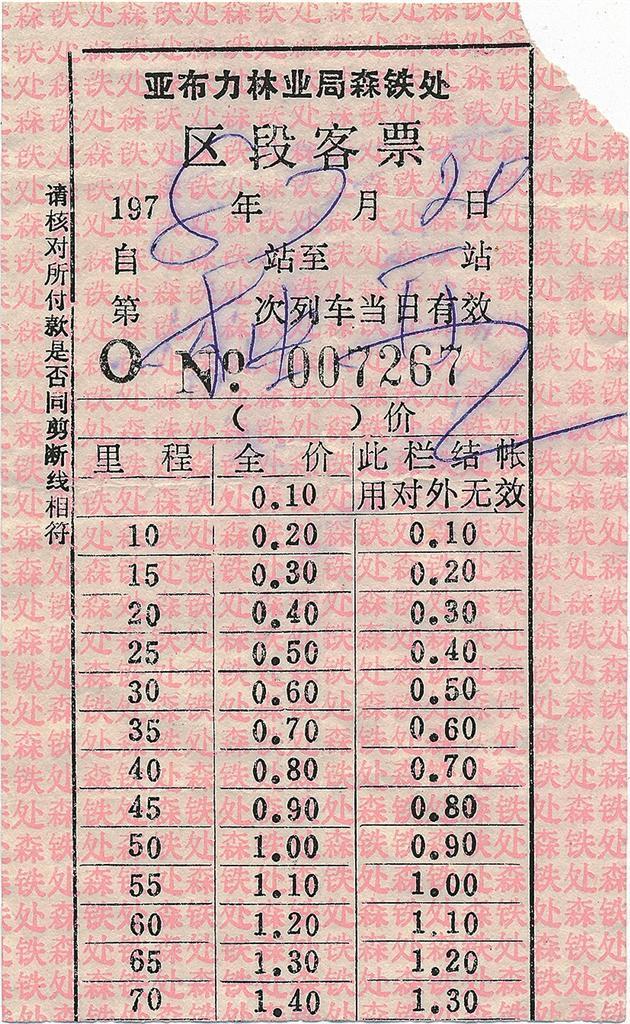 亚布力林业局森铁处
区段客票
1978年 月20日
自 站至 站
第 次列车当日有效
No. 007267
( )价
请核对所付款是否同剪断线相符
里程 全价 此栏结帐
0.10 用对外无效
10 0.20 0.10
15 0.30 0.20
20 0.40 0.30
25 0.50 0.40
30 0.60 0.50
35 0.70 0.60
40 0.80 0.70
45 0.90 0.80
50 1.00 0.90
55 1.10 1.00
60 1.20 1.10
65 1.30 1.20
70 1.40 1.30